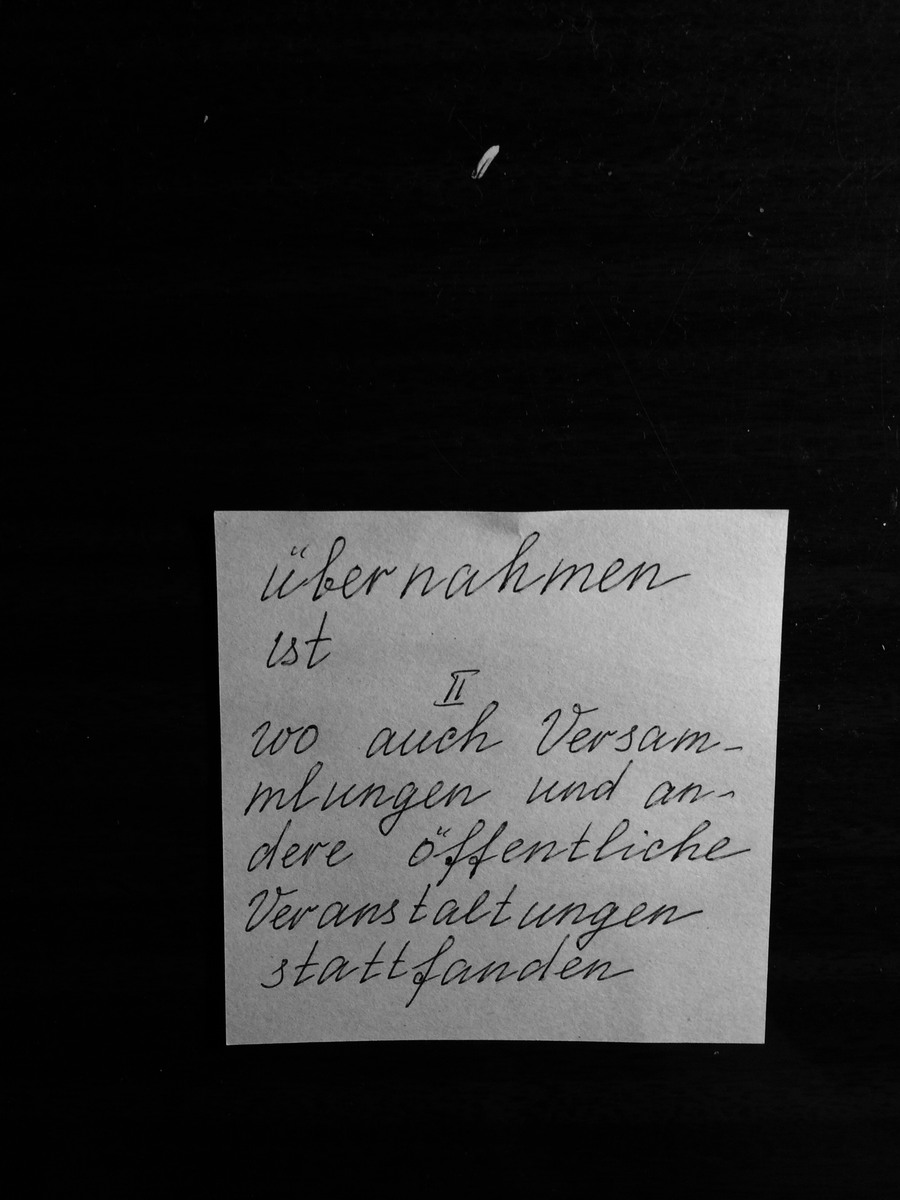 übernahmen
ist
II
wo auch Versam-
mlungen und an-
dere öffentliche
Veranstaltungen
stattfanden